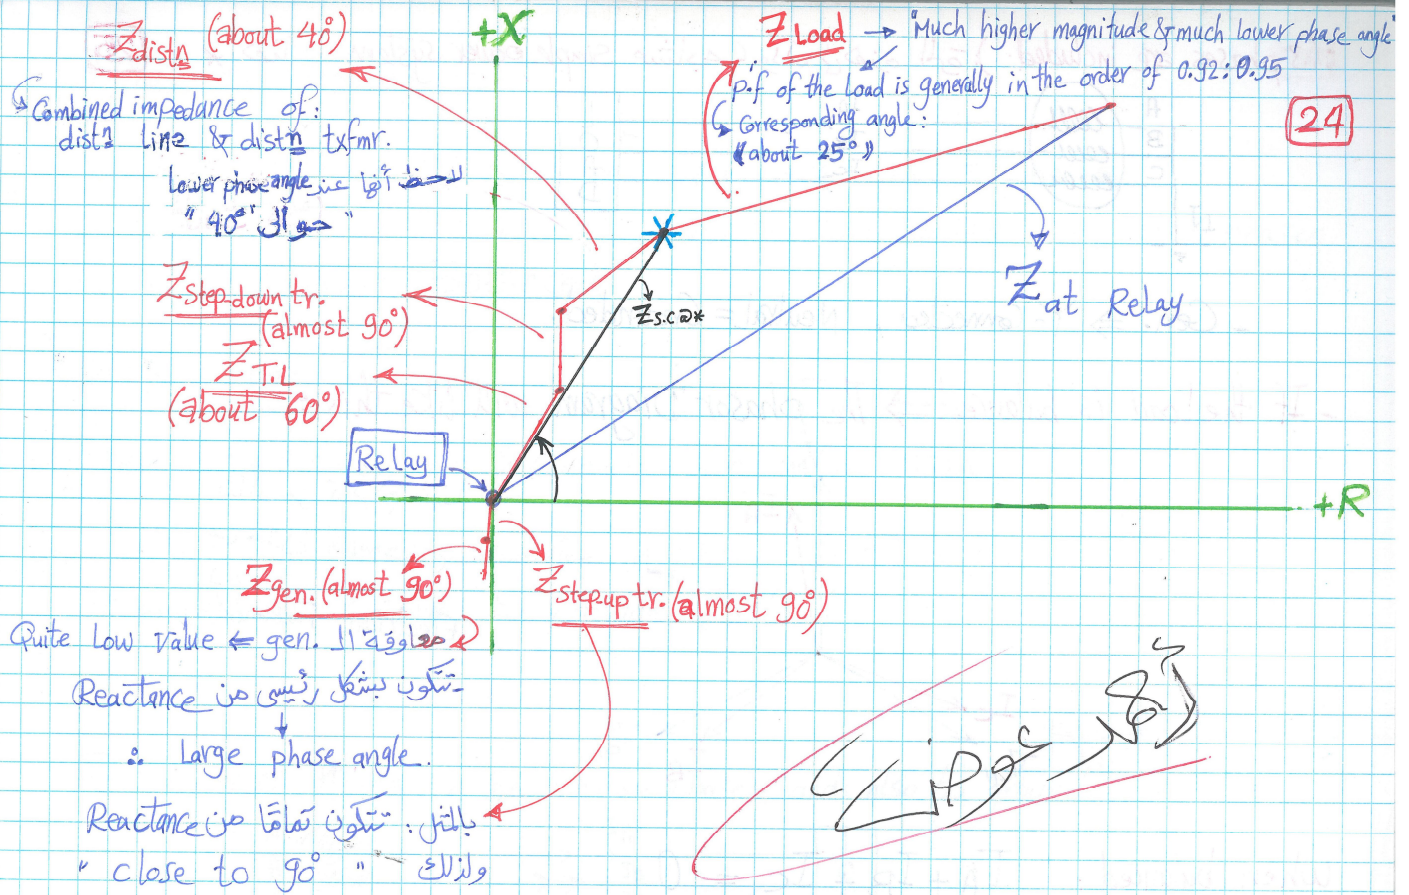 Z distn (about 40°)
Combined impedance of:
distn line & distn txfmr.
لاحظ أنها عند Lower phase angle
"حوالى 40°"
+X
Z Load → "Much higher magnitude & much lower phase angle"
p.f of the Load is generally in the order of 0.92:0.95
Corresponding angle:
"(about 25°)"
24
Z step-down tr.
(almost 90°)
Z T.L
(about 60°)
Zs.c@*
Z at Relay
Relay
+R
Zgen. (almost 90°)
Z step-up tr. (almost 90°)
معاوقة الـ gen. ← Quite Low Value
تتكون بشكل رئيسى من Reactance
∴ Large phase angle.
بالمثل: تتكون تمامًا من Reactance
ولذلك "close to 90°"
أحمد عوض